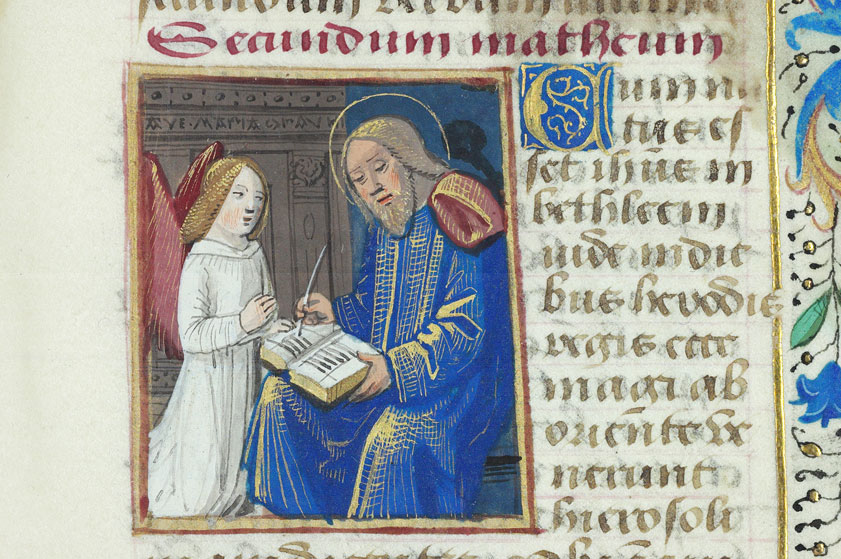 Secundum matheum
AVE·MARIA·GRA
Cum na
tus es
set ihūs in
bethleem
iude in die
bus herodis
regis ecce
magi ab
oriēnte ve
nerunt
hierosoli